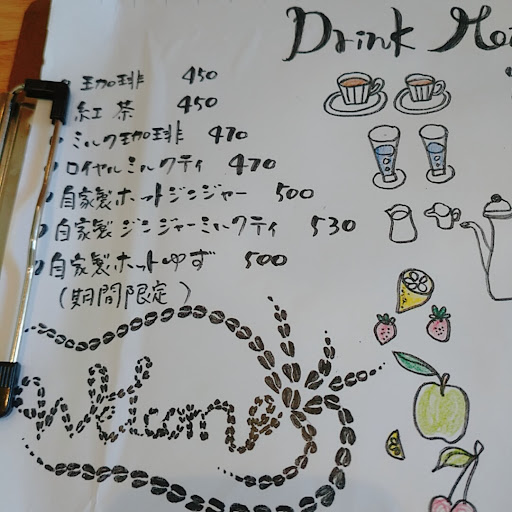 Drink Me
・珈琲 450
・紅茶 450
・ミルク珈琲 470
・ロイヤルミルクティ 470
・自家製ホットジンジャー 500
・自家製ジンジャーミルクティ 530
・自家製ホットゆず 500
(期間限定)
Welcome